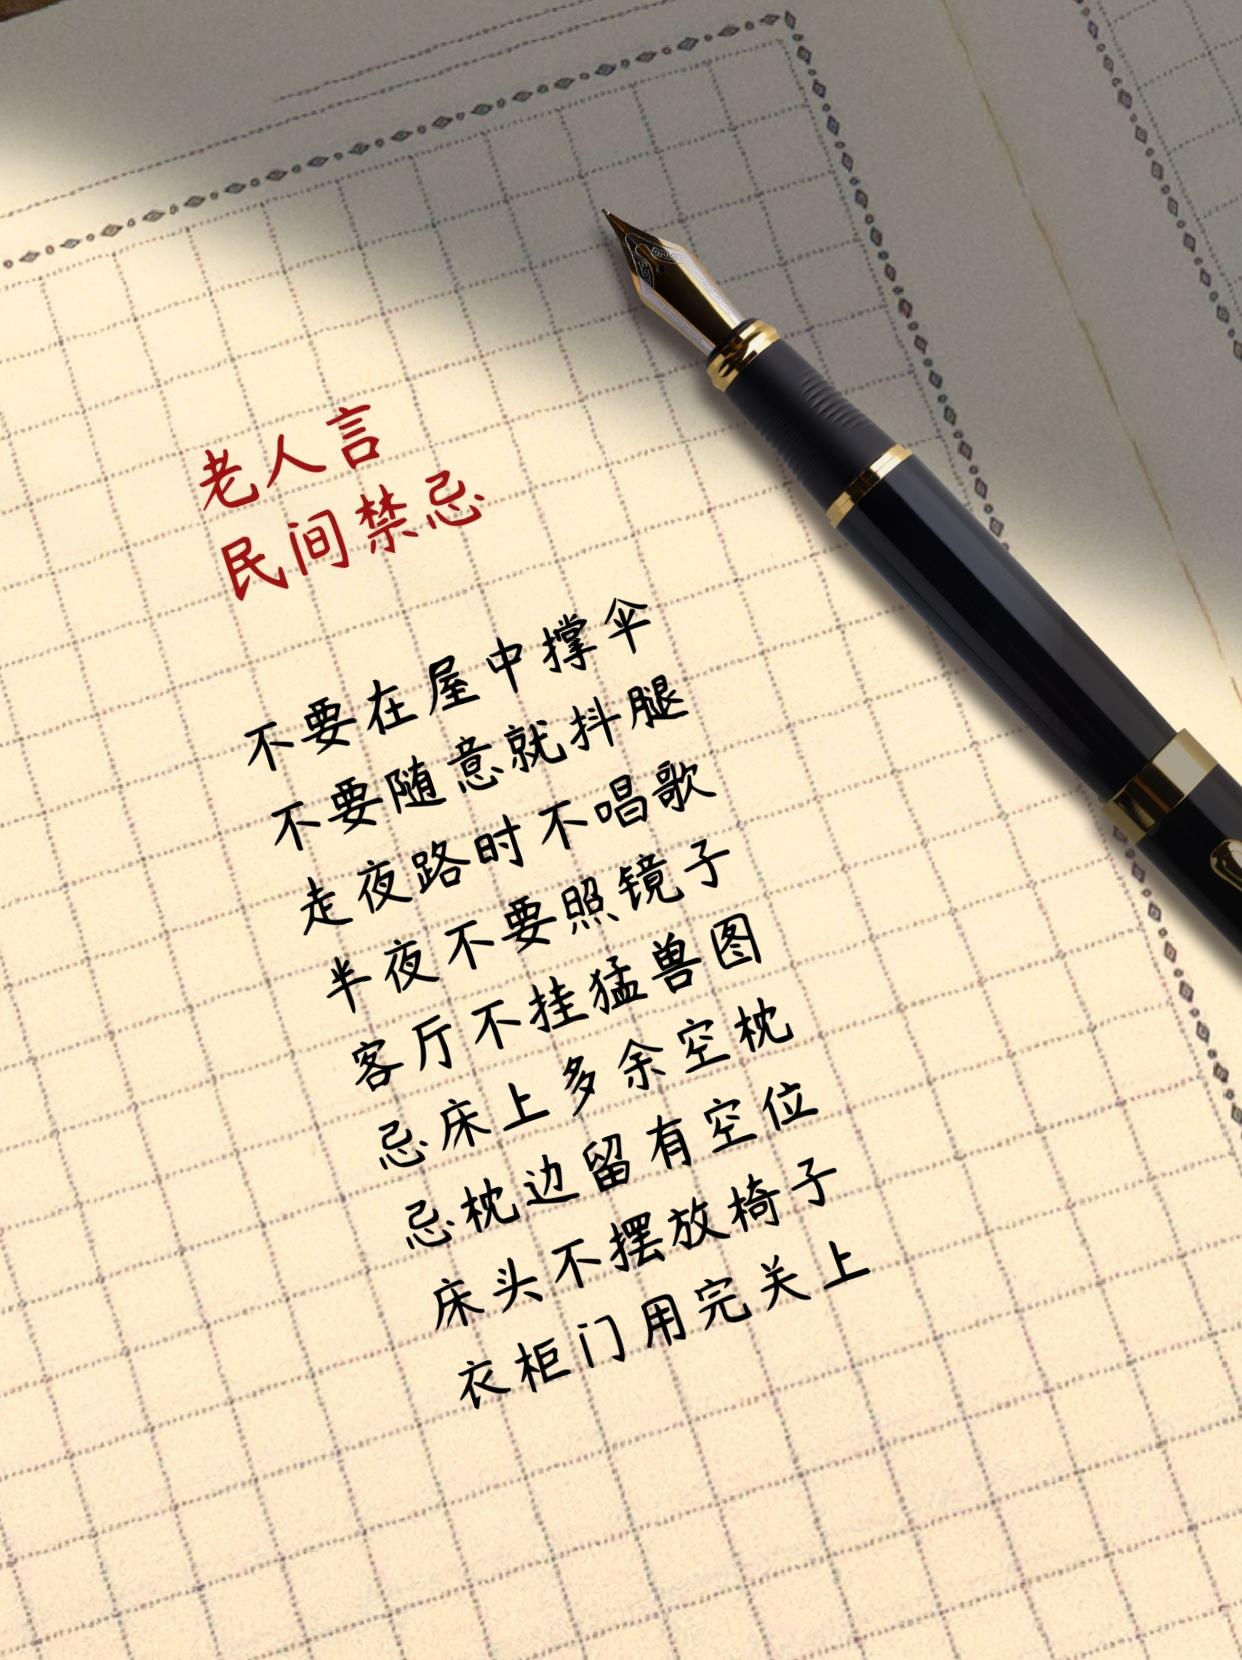 老人言
民间禁忌
不要在屋中撑伞
不要随意就抖腿
走夜路时不唱歌
半夜不要照镜子
客厅不挂猛兽图
忌床上多余空枕
忌枕边留有空位
床头不摆放椅子
衣柜门用完关上